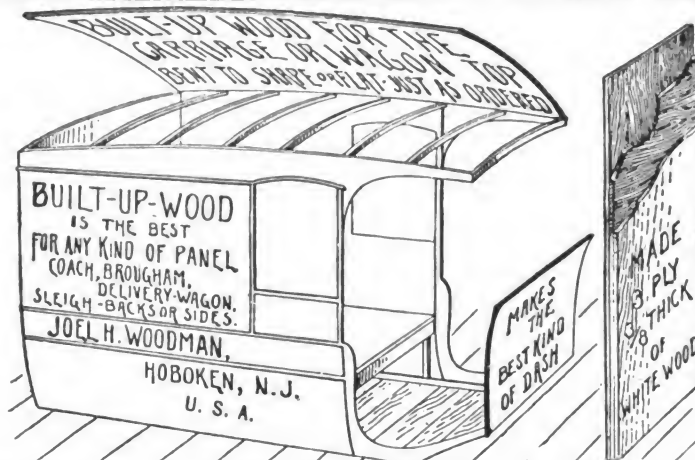 BUILT-UP WOOD FOR THE
CARRIAGE OR WAGON TOP
BENT TO SHAPE OR FLAT-JUST AS ORDERED
BUILT-UP-WOOD
IS THE BEST
FOR ANY KIND OF PANEL
COACH, BROUGHAM,
DELIVERY-WAGON.
SLEIGH-BACKS OR SIDES.
JOEL H. WOODMAN,
HOBOKEN, N.J.
U.S.A.
MAKES
THE
BEST KIND
OF DASH
MADE
3 PLY
3/8 THICK
OF
WHITE WOOD